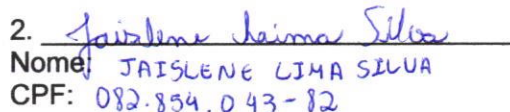 2. Jaislene Laima Silva
Nome: JAISLENE LIMA SILVA
CPF: 082.854.043-82